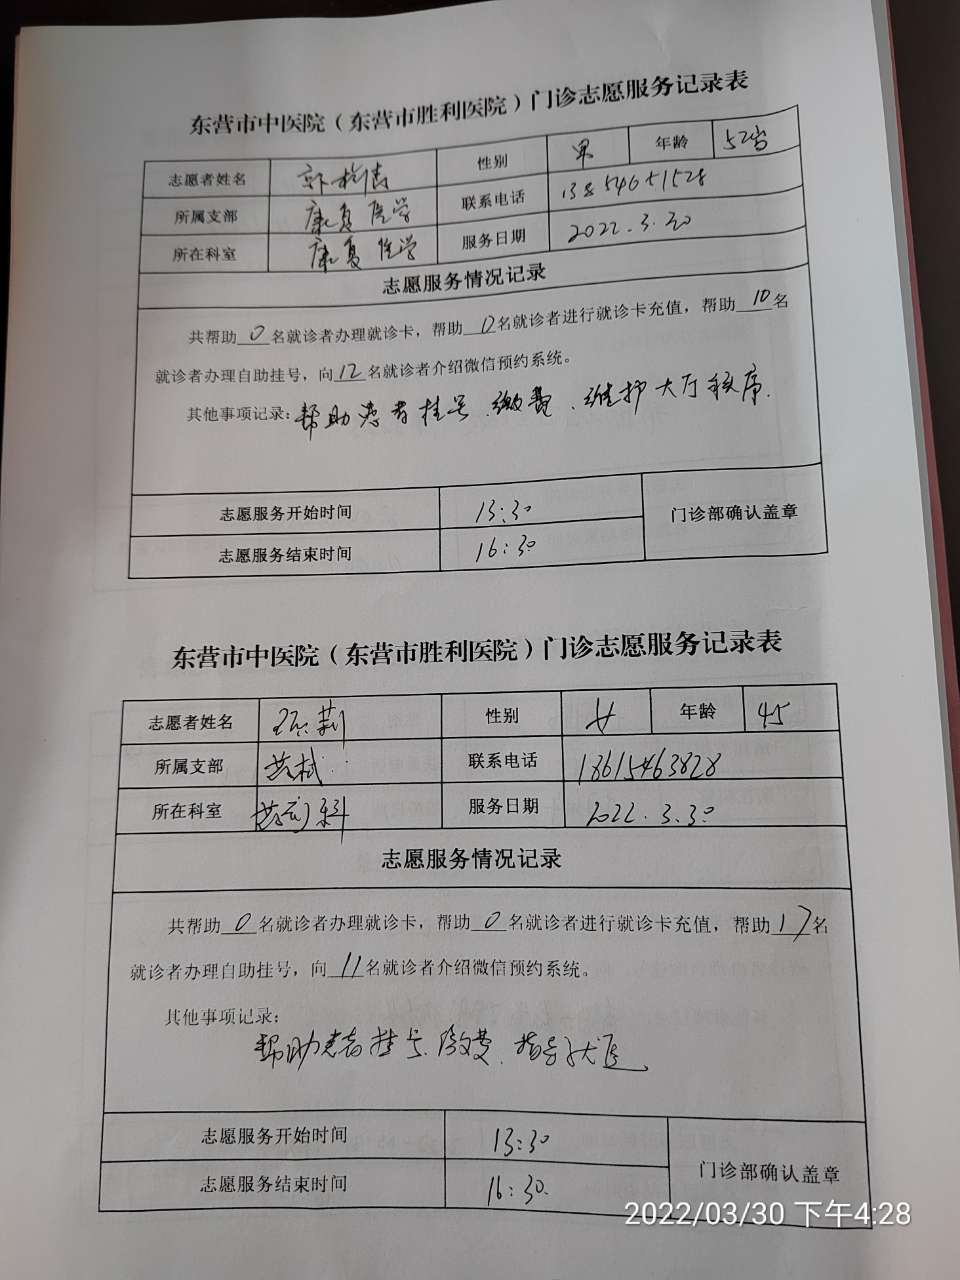 东营市中医院（东营市胜利医院）门诊志愿服务记录表
志愿者姓名 性别 男 年龄 52岁
所属支部 康复医学 联系电话 13854651528
所在科室 康复医学 服务日期 2022.3.30
志愿服务情况记录
共帮助0名就诊者办理就诊卡，帮助0名就诊者进行就诊卡充值，帮助10名
就诊者办理自助挂号，向12名就诊者介绍微信预约系统。
其他事项记录：帮助患者挂号、缴费、维护大厅秩序.
志愿服务开始时间 13:30 门诊部确认盖章
志愿服务结束时间 16:30
东营市中医院（东营市胜利医院）门诊志愿服务记录表
志愿者姓名 性别 女 年龄 45
所属支部 联系电话 18615463828
所在科室 药剂科 服务日期 2022.3.30
志愿服务情况记录
共帮助0名就诊者办理就诊卡，帮助0名就诊者进行就诊卡充值，帮助17名
就诊者办理自助挂号，向11名就诊者介绍微信预约系统。
其他事项记录：
帮助患者挂号、缴费、指导就医
志愿服务开始时间 13:30 门诊部确认盖章
志愿服务结束时间 16:30.
2022/03/30 下午4:28